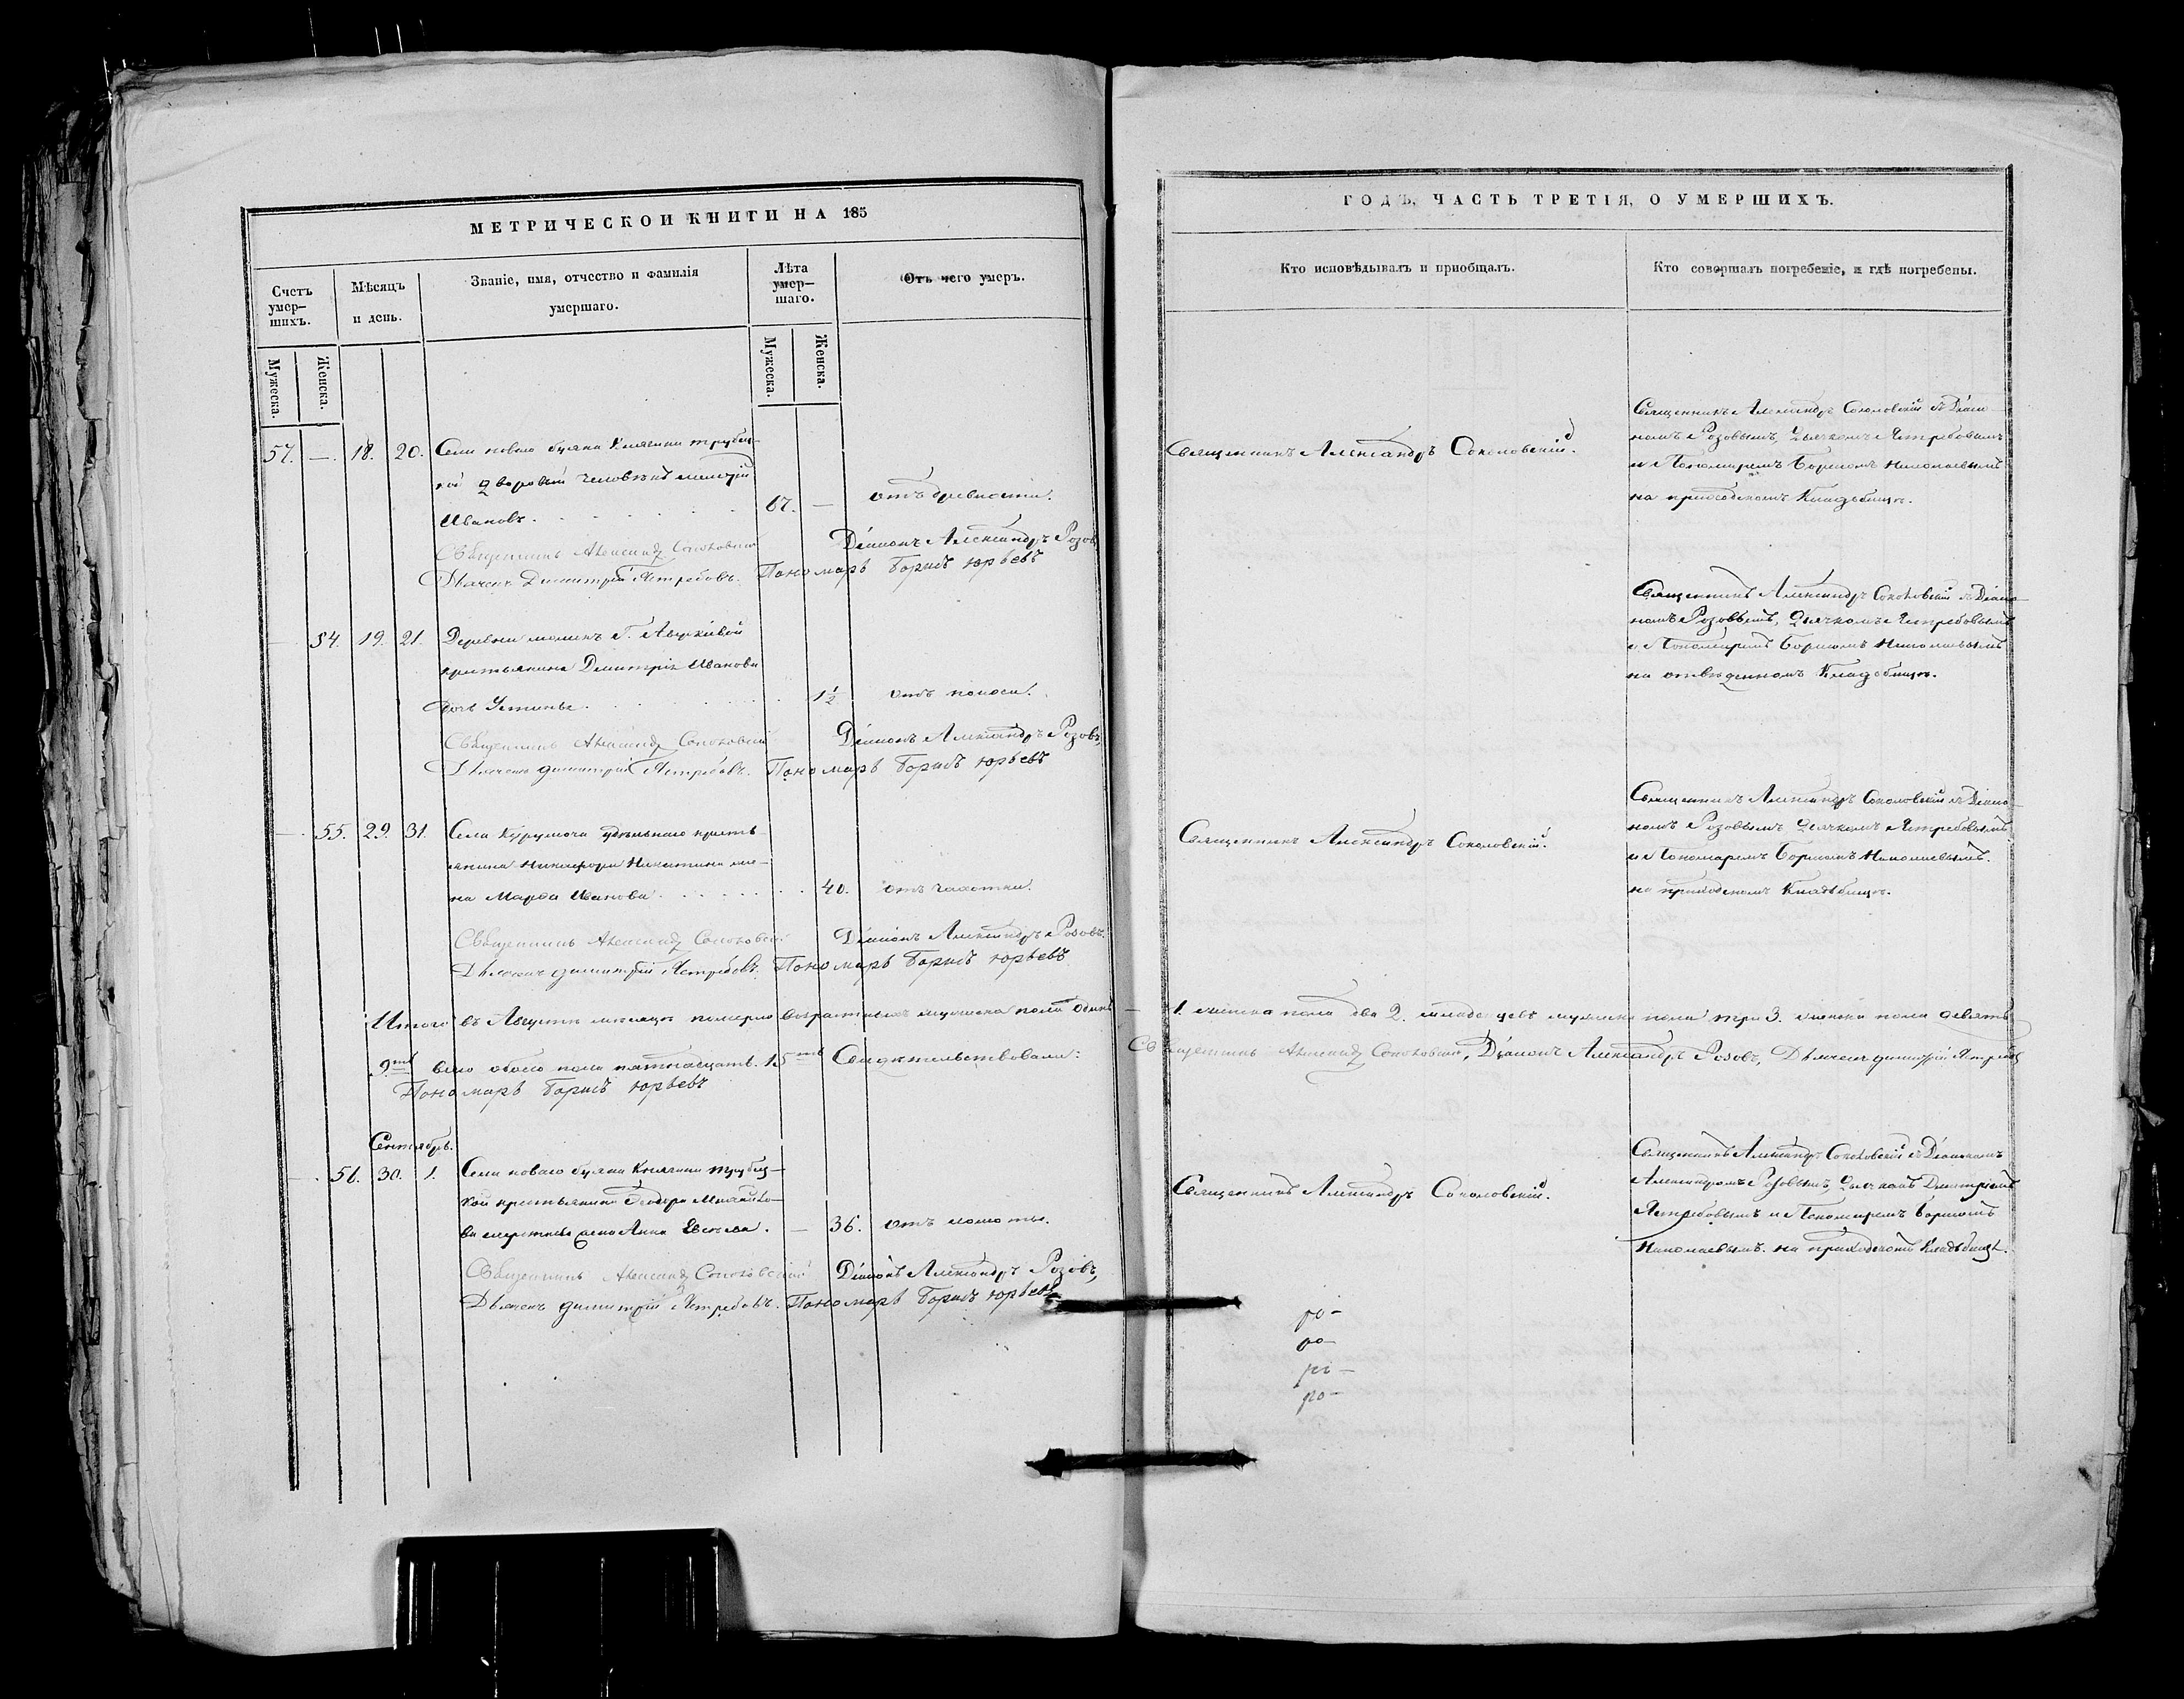 МЕТРИЧЕСКОЙ КНИГИ НА 185
Счетъ умер-шихъ.
Мѣсяцъ и день.
Званіе, имя, отчество и фамилія умершаго.
Лѣта умер-шаго.
Отъ чего умеръ.
Мужеска.
Женска.
Мужеска.
Женска.
57. — 18. 20. Села новаго буяна Княгини трубец-
кой дворовый человѣкъ
Ивановъ. 67. — отъ древности.
Священникъ Александръ Соколовскій Діаконъ Александръ Розовъ
Дьячекъ Димитрій Ястребовъ. Пономарь Борисъ Юрьевъ
— 54. 19. 21. Деревни
крестьянина Димитрія Иванова
дочь Устинья. 1½ отъ поноса.
Священникъ Александръ Соколовскій Діаконъ Александръ Розовъ,
Дьячекъ Димитрій Ястребовъ. Пономарь Борисъ Юрьевъ
— 55. 29. 31. Села Курумоча удѣльнаго кресть-
янина Никифора Никитина же-
на Марѳа Иванова. 40. отъ чахотки.
Священникъ Александръ Соколовскій Діаконъ Александръ Розовъ.
Дьячекъ Димитрій Ястребовъ. Пономарь Борисъ Юрьевъ
Итого въ Августѣ мѣсяцѣ померло возрастныхъ мужеска пола одинъ
9ть всего обоего пола пятнадцать. 15ть Свидѣтельствовали:
Пономарь Борисъ Юрьевъ
Сентябрь.
— 56. 30. 1. Села новаго буяна Княгини трубец-
кой крестьянина Ѳеодора
жена Анна — 36. отъ
Священникъ Александръ Соколовскій Діаконъ Александръ Розовъ,
Дьячекъ Димитрій Ястребовъ. Пономарь Борисъ Юрьевъ
ГОДЪ, ЧАСТЬ ТРЕТІЯ, О УМЕРШИХЪ.
Кто исповѣдывалъ и пріобщалъ.
Кто совершалъ погребеніе, и гдѣ погребены.
Священникъ Александръ Соколовскій.
Священникъ Александръ Соколовскій съ Діако-
номъ Розовымъ, Дьячкомъ Ястребовымъ
и Пономаремъ Борисомъ Николаевымъ
на приходскомъ Кладбищѣ.
Священникъ Александръ Соколовскій съ Діако-
номъ Розовымъ, Дьячкомъ Ястребовымъ
и Пономаремъ Борисомъ Николаевымъ
на отведенномъ Кладбищѣ.
Священникъ Александръ Соколовскій.
Священникъ Александръ Соколовскій съ Діако-
номъ Розовымъ Дьячкомъ Ястребовымъ
и Пономаремъ Борисомъ Николаевымъ.
на приходскомъ Кладбищѣ.
1. женска пола два 2. младенцевъ мужеска пола три 3. женска пола девять
Священникъ Александръ Соколовскій, Діаконъ Александръ Розовъ, Дьячекъ Димитрій Ястребовъ
Священникъ Александръ Соколовскій.
Священникъ Александръ Соколовскій съ Діакономъ
Александромъ Розовымъ, Дьячкомъ Димитріемъ
Ястребовымъ и Пономаремъ Борисомъ
Николаевымъ. на приходскомъ Кладбищѣ.